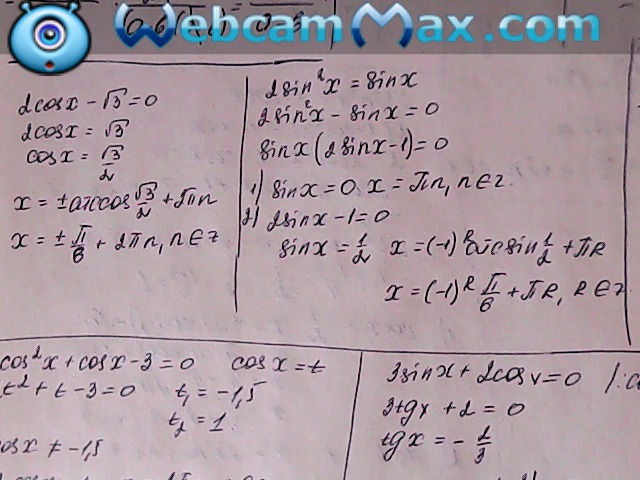 WebcamMax.com
2cosx - √3 = 0
2cosx = √3
cosx = √3/2
x = ± arccos √3/2 + 2πn
x = ± π/6 + 2πn, n∈z
2sin²x = sinx
2sin²x - sinx = 0
sinx(2sinx-1) = 0
1) sinx = 0 x = πn, n∈z.
2) 2sinx - 1 = 0
sinx = 1/2 x = (-1)ᵏ arcsin 1/2 + πk
x = (-1)ᵏ π/6 + πk, k∈z
cos²x + cosx - 3 = 0 cosx = t
t² + t - 3 = 0 t₁ = -1,5
t₂ = 1.
cosx ≠ -1,5
3sinx + 2cosx = 0
3tgx + 2 = 0
tgx = - 2/3